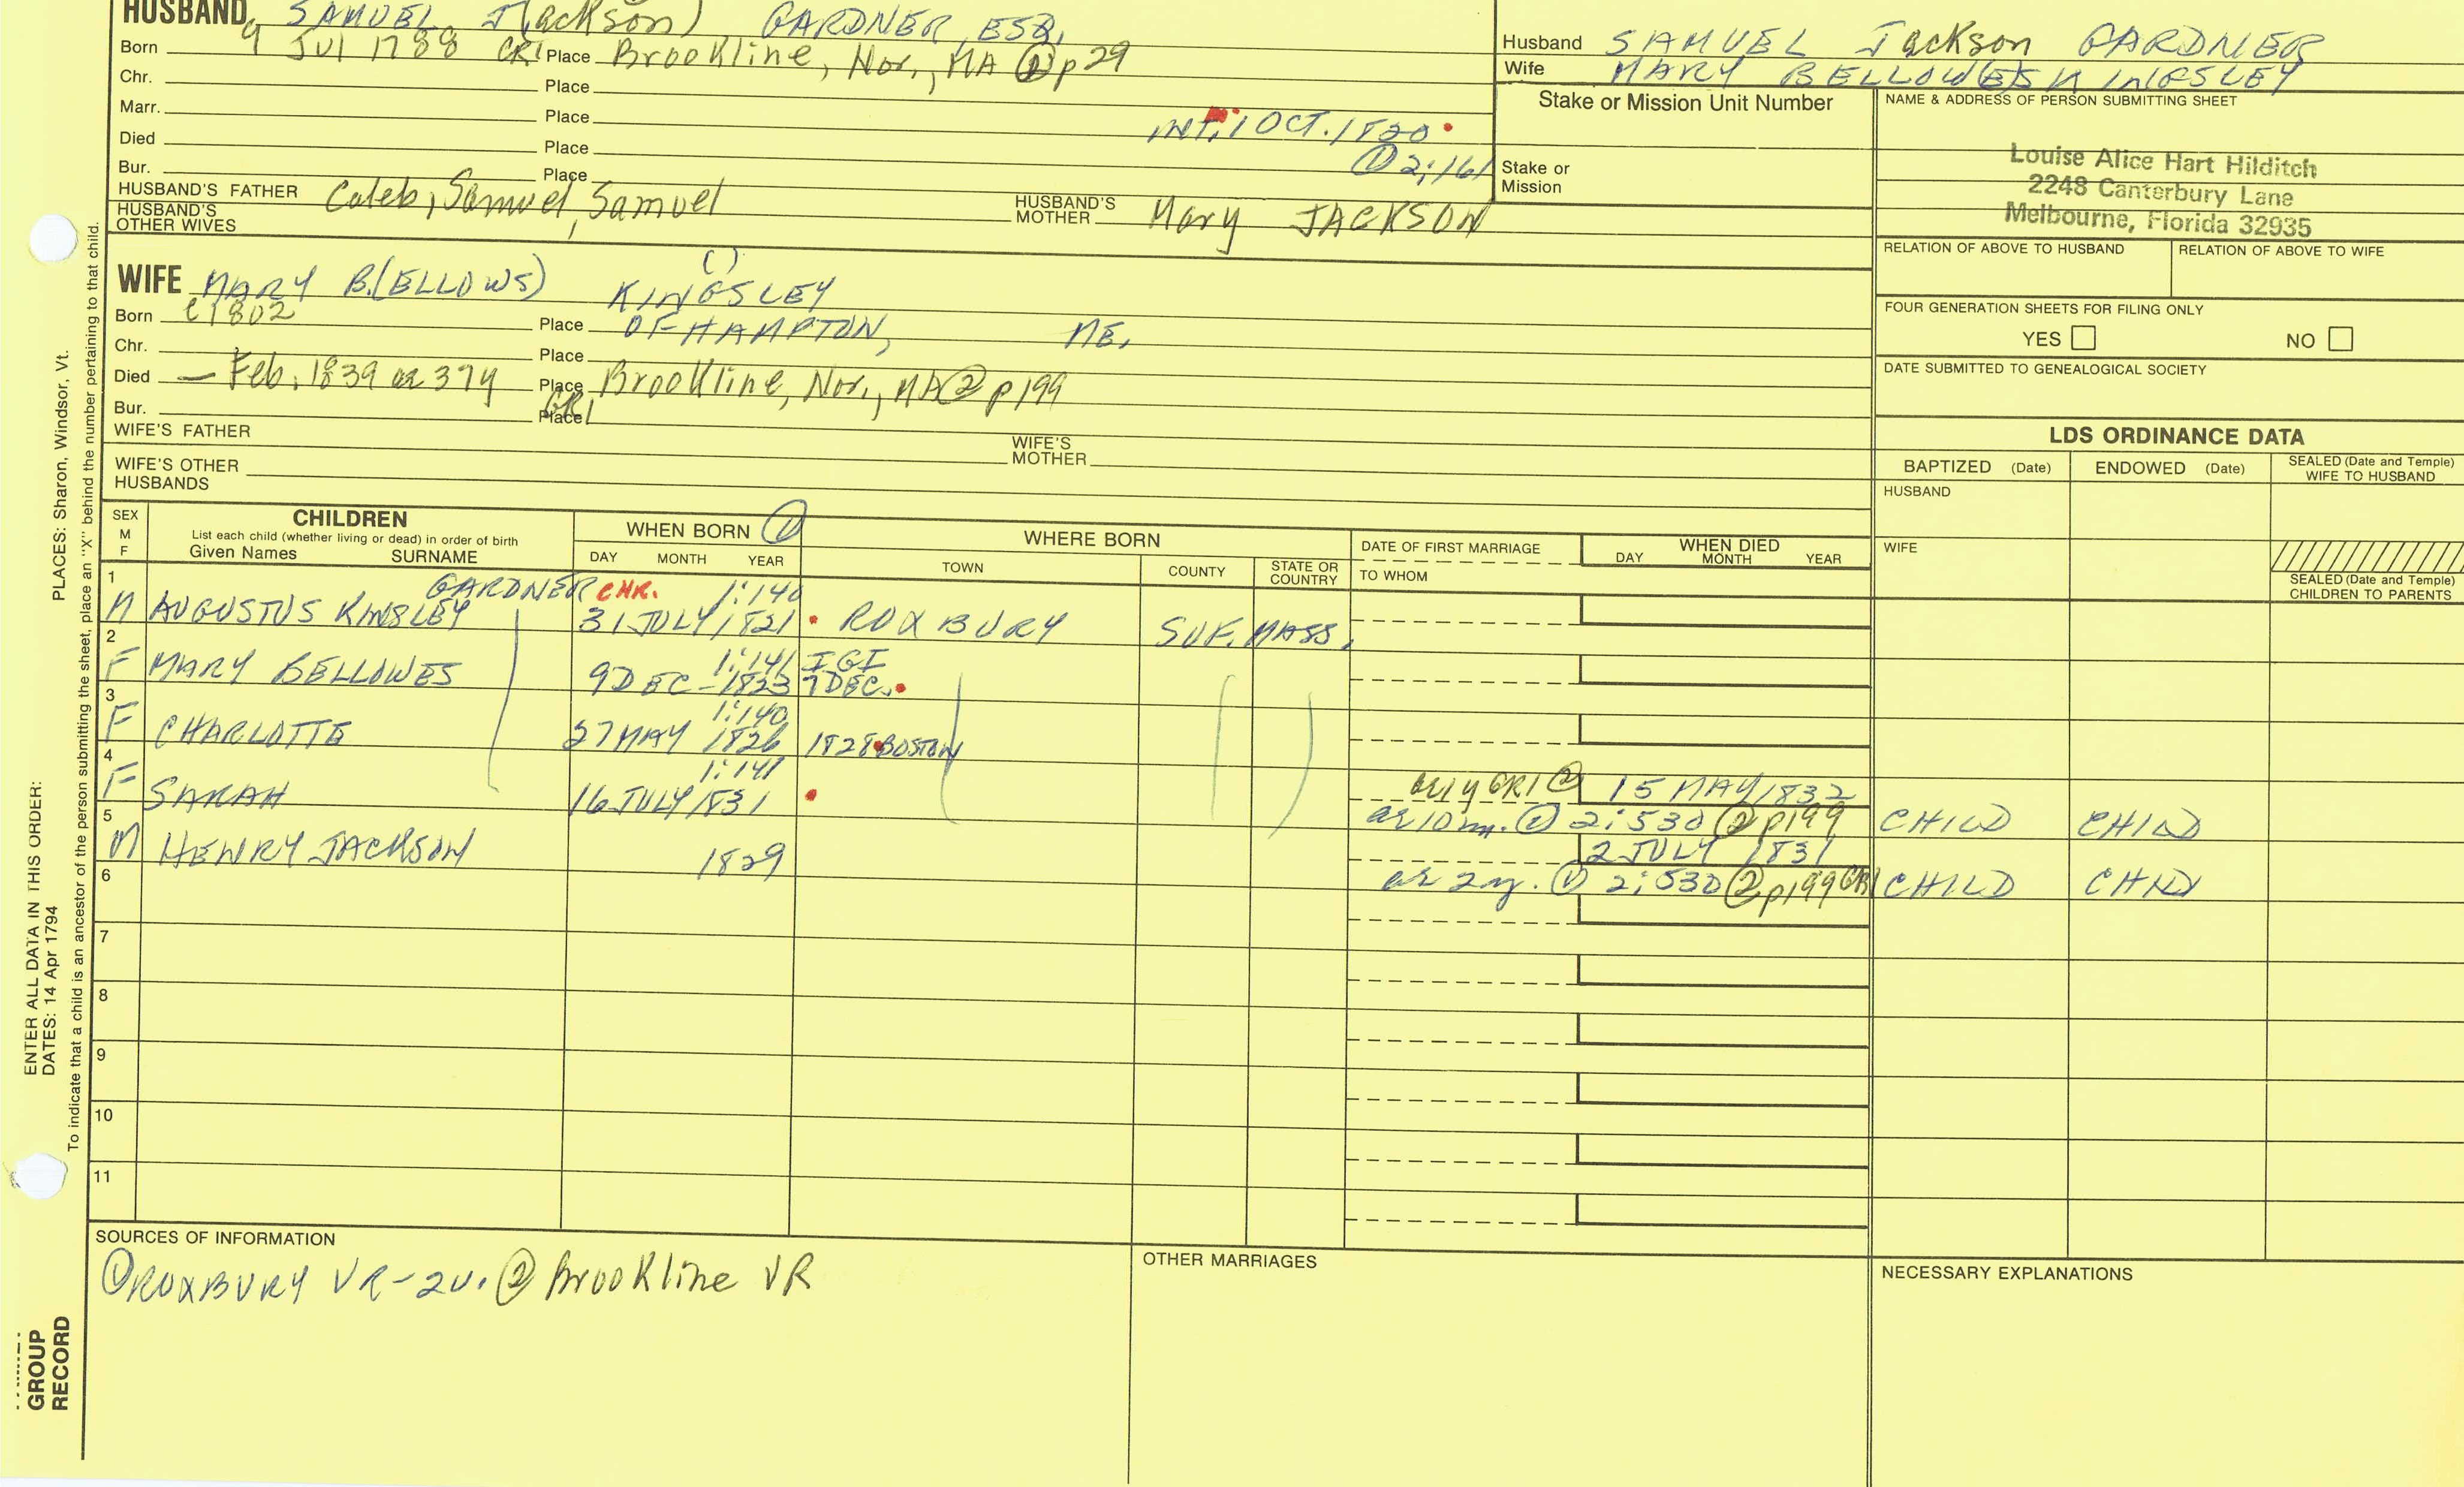 HUSBAND SAMUEL J(ackson) GARDNER, ESQ.
Born 9 Jul 1788 CR1 Place Brookline, Nor., MA ② p 29
Chr. Place
Marr. Place INT. 1 OCT. 1820
Died Place ① 2:161
Bur. Place
HUSBAND'S FATHER Caleb, Samuel, Samuel HUSBAND'S MOTHER Mary JACKSON
HUSBAND'S OTHER WIVES
Husband SAMUEL Jackson GARDNER
Wife MARY BELLOWES KINGSLEY
Stake or Mission Unit Number
Stake or Mission
NAME & ADDRESS OF PERSON SUBMITTING SHEET
Louise Alice Hart Hilditch
2248 Canterbury Lane
Melbourne, Florida 32935
RELATION OF ABOVE TO HUSBAND RELATION OF ABOVE TO WIFE
FOUR GENERATION SHEETS FOR FILING ONLY
YES NO
DATE SUBMITTED TO GENEALOGICAL SOCIETY
WIFE MARY B.(ELLOWS) KINGSLEY ( )
Born c1802 Place OF HAMPTON, ME.
Chr. Place
Died — Feb. 1839 ae 37y Place Brookline, Nor., MA ② p 199
Bur. Place GR1
WIFE'S FATHER WIFE'S MOTHER
WIFE'S OTHER HUSBANDS
LDS ORDINANCE DATA
BAPTIZED (Date) ENDOWED (Date) SEALED (Date and Temple) WIFE TO HUSBAND
HUSBAND
WIFE
SEALED (Date and Temple) CHILDREN TO PARENTS
SEX M F
CHILDREN
List each child (whether living or dead) in order of birth
Given Names SURNAME
WHEN BORN ①
DAY MONTH YEAR
WHERE BORN
TOWN COUNTY STATE OR COUNTRY
DATE OF FIRST MARRIAGE
TO WHOM
WHEN DIED
DAY MONTH YEAR
1 GARDNER CHR. 1:140
M AUGUSTUS KINSLEY 31 JULY 1821 ROXBURY SUF. MASS.
2 1:141 IGI
F MARY BELLOWES 9 DEC - 1823 7 DEC.
3 1:140
F CHARLOTTE 27 MAY 1826 1828 BOSTON
4 1:141
F SARAH 16 JULY 1831 GR1 ② 15 MAY 1832
ae 10 m. ① 2:530 ② p199 CHILD CHILD
5
M HENRY JACKSON 1829 2 JULY 1831
ae 2 y. ① 2:530 ② p199 GR1 CHILD CHILD
6
7
8
9
10
11
SOURCES OF INFORMATION
① ROXBURY VR - 2V. ② Brookline VR
OTHER MARRIAGES
NECESSARY EXPLANATIONS
ENTER ALL DATA IN THIS ORDER:
DATES: 14 Apr 1794 PLACES: Sharon, Windsor, Vt.
To indicate that a child is an ancestor of the person submitting the sheet, place an "X" behind the number pertaining to that child.
GROUP
RECORD